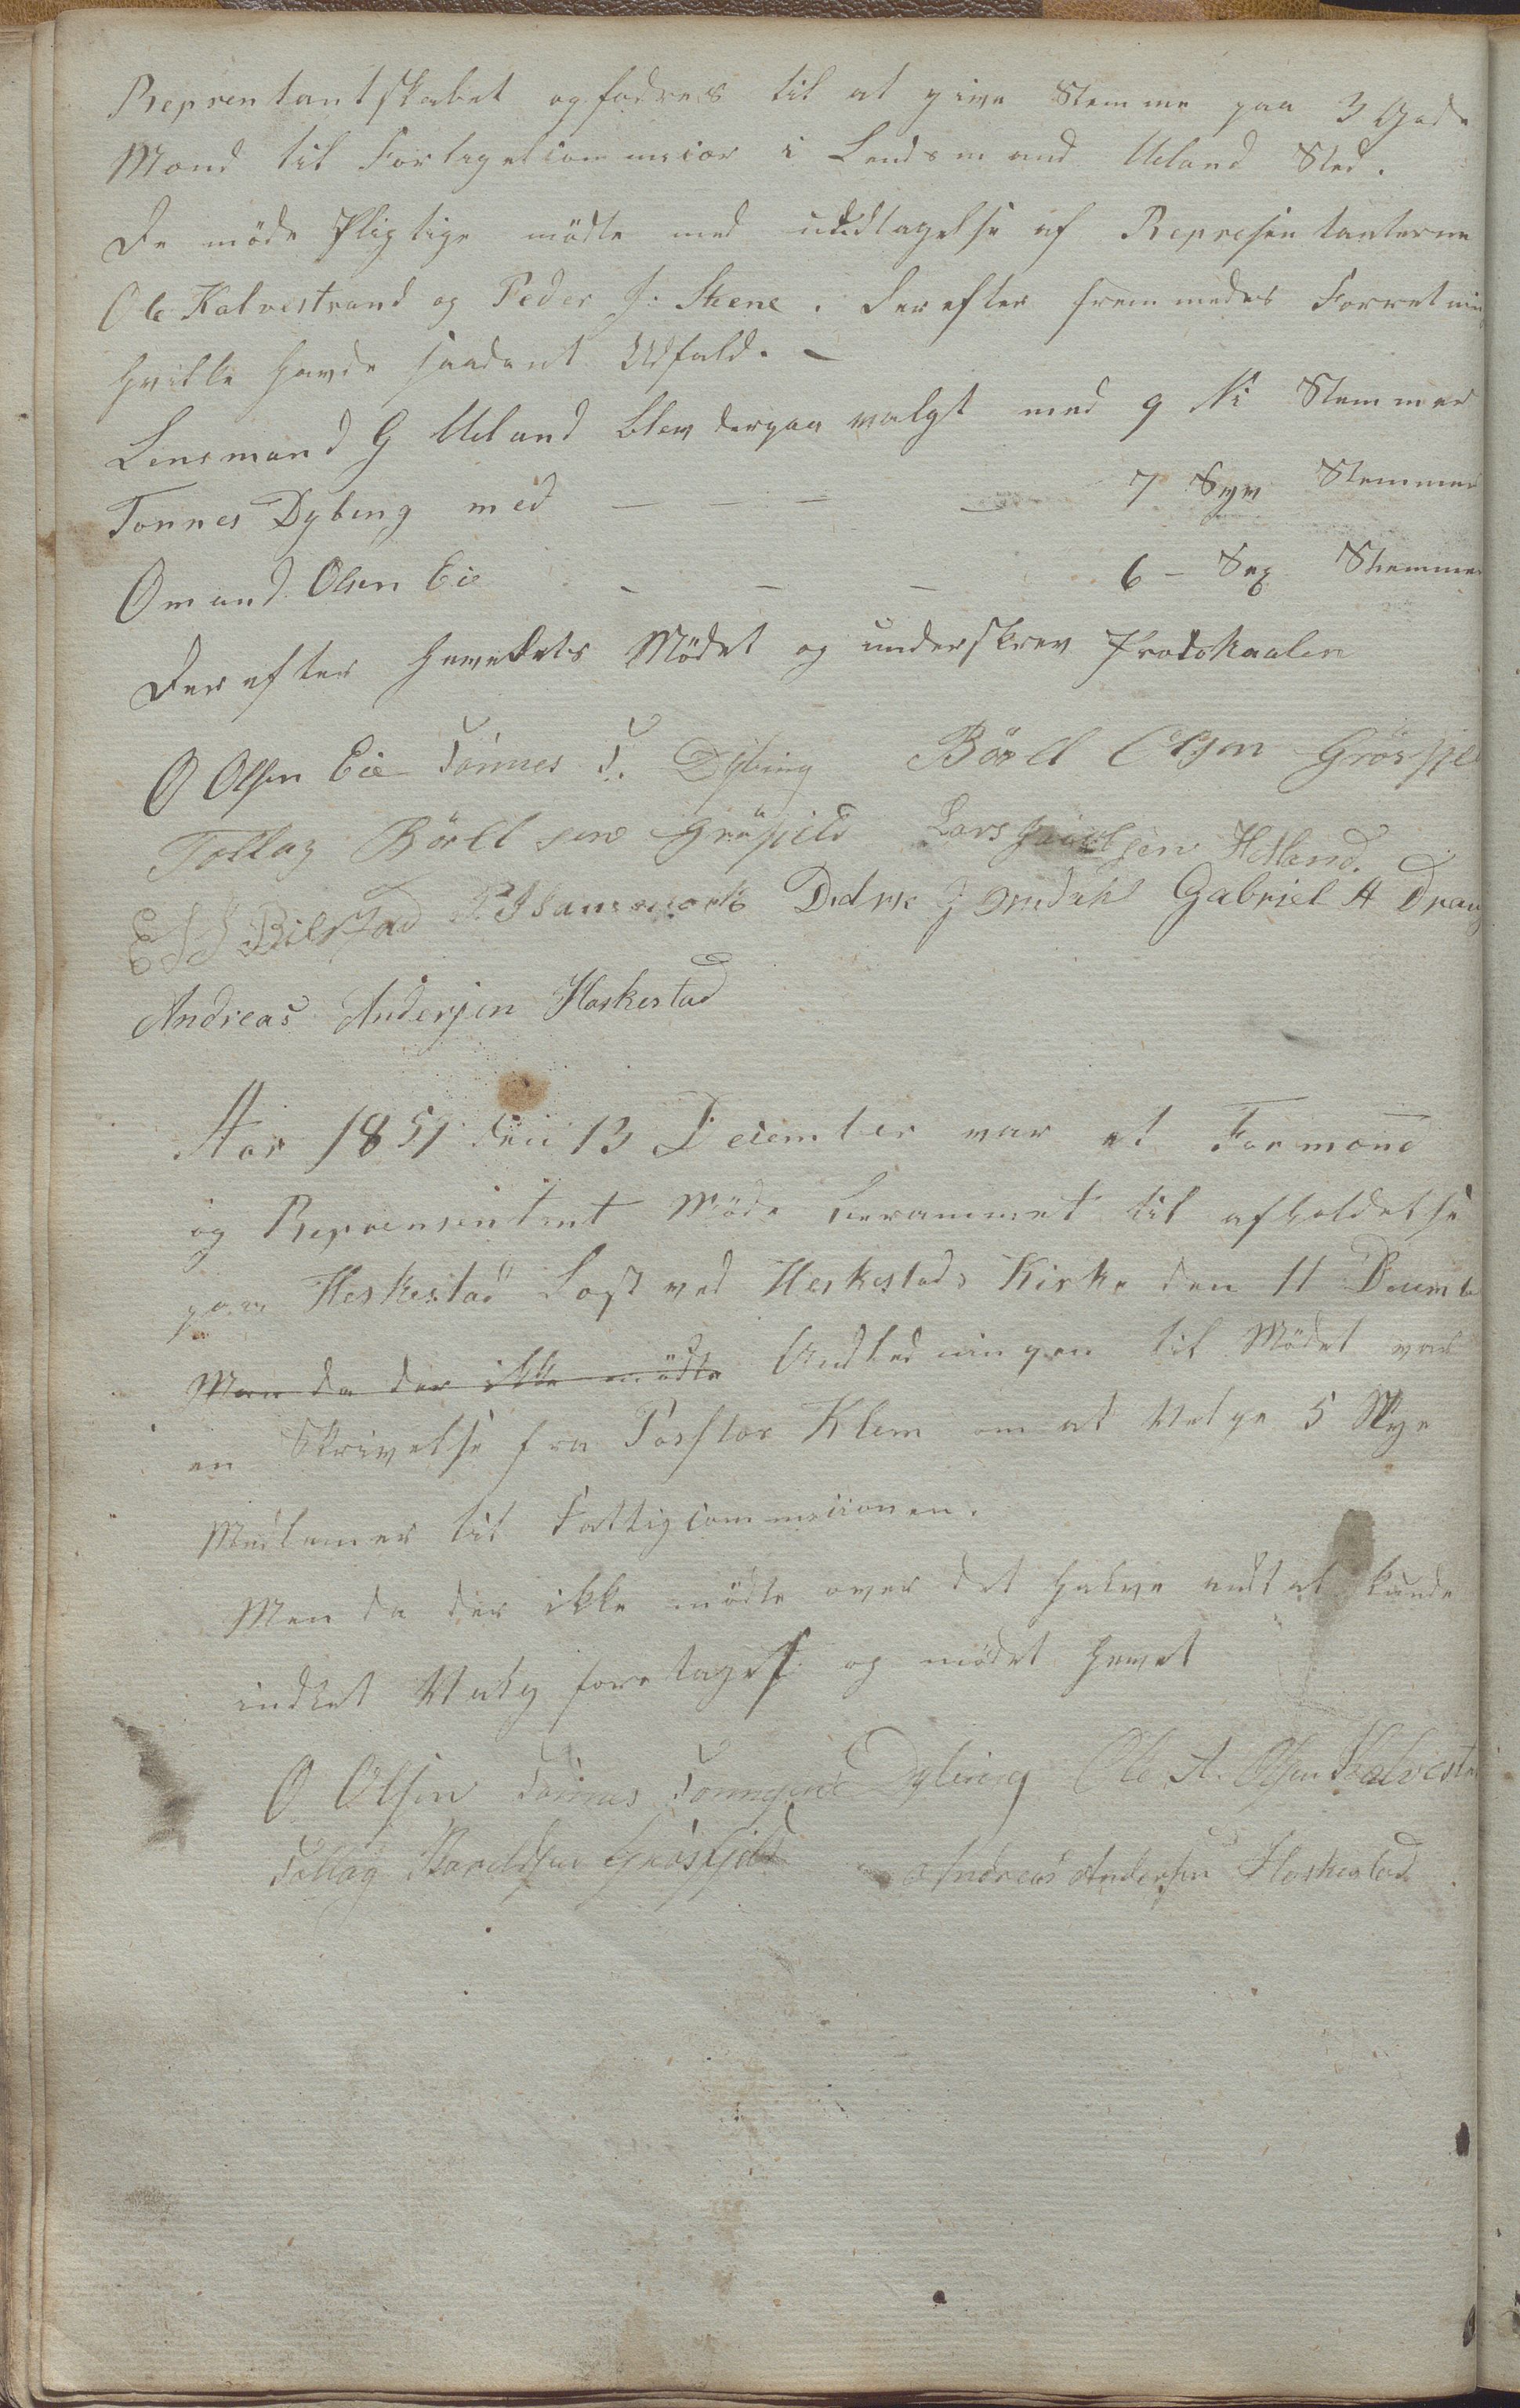 Reprentantskabet opfodres til at give Stemme paa 3 Gode
Mænd til Forligelcommicior i Lendsmand Ueland Sted.
De möde Pligtige mödte med undtagelse af Representanterne
Ole Kalvestrand og Peder J. Skene. Derefter fremmedes Forretnin
hvilke havde saadant Udfald. -
Lensmand G Ueland blev derpaa valgt med 9 Ni Stemmer
Tonnes Dybing med - - - 7 Syv Stemmer
Omund Olsen Eie - - - 6 - Sex Stemmer
Derefter hevedets Mödet og underskrev Prodokaalen
O Olsen Eie Tönnes T. Dybing Börll Olsen Grösfjel
Tollag Börllsen Gröfield Lars Hetland.
E Bilstad Gabriel A Drang
Andreas Andersen Heskestad
Aar 1851 den 13 Deiember var et Formand
og Reprensentent Möde berammet til afholdelse
paa Heskestad Lost ved Heskestads Kirke den 11 Decemb
Men da der ikke mödte Andledningen til Mödet var
en Skrivelse fra Pastor Klem om at Velge 5 Nye
Medlemer til Fattigcommiiionen.
Men da der ikke mödte over det halve antal kunde
indtet Valg foretages og mödet hevet
O Olsen Tönnes Tönnesen Dybing Ole A. Olsen Kalvestr
Tollag Bardsen Grösfjeld Andreas Andersen Heskestad